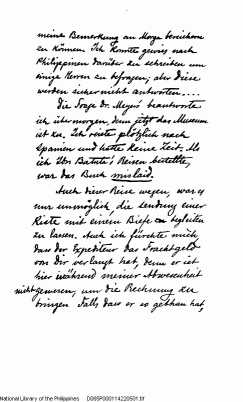 meine Bemerkung an Morga bereichern
zu können. Ich könnte gewiss nach
Philippinen darüber zu schreiben um
einige Herren zu befragen; aber diese
werden sicher nicht antworten....
Die Frage Dr. Meyers beantworte
ich übermorgen, denn jetzt das Museum
ist zu. Ich reiste plötzlich nach
Spanien und hatte keine Zeit. Als
ich Ibn Batuta's Reisen bestellte,
war das Buch mislaid.
Auch dieser Reise wegen, war es
mir unmöglich die Sendung einer
Kiste mit einem Briefe zu begleiten
zu lassen. Auch ich fürchte mich
dass der Expediteur das Frachtgeld
von Dir verlangt hat, denn er ist
hier während meiner Abwesenheit
nicht gewesen, um die Rechnung zu
bringen. Falls dass er es gethan hat,
National Library of the Philippines